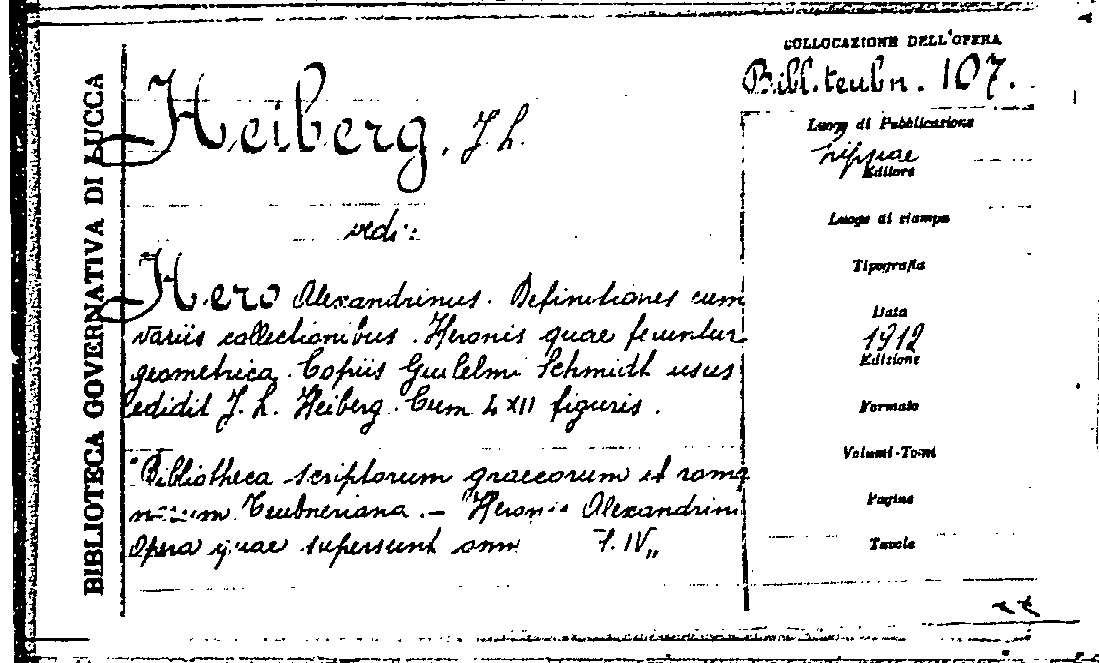 BIBLIOTECA GOVERNATIVA DI LUCCA
COLLOCAZIONE DELL'OPERA
Bibl. teubn. 107.
Heiberg, J. L.
vedi:
Hero Alexandrinus. Definitiones cum
variis collectionibus. Heronis quae feruntur
geometrica. Copiis Guilelmi Schmidt usus
edidit J. L. Heiberg. Cum LXII figuris.
"Bibliotheca scriptorum graecorum et roma
norum Teubneriana. - Heronis Alexandrini
Opera quae supersunt omn T. IV„
Luogo di Pubblicazione
Lipsiae
Editore
Luogo di stampa
Tipografia
Data
1912
Edizione
Formato
Volumi-Tomi
Pagine
Tavole